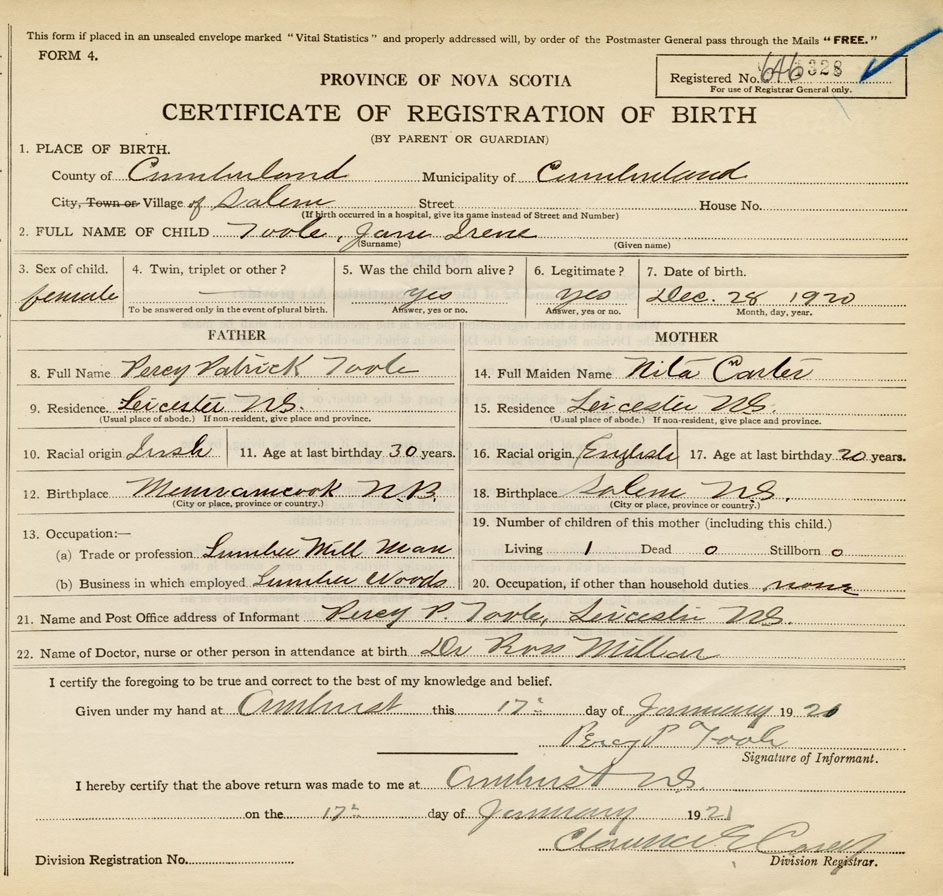 This form if placed in an unsealed envelope marked "Vital Statistics" and properly addressed will, by order of the Postmaster General pass through the Mails "FREE."
FORM 4.
Registered No. 646328
For use of Registrar General only.
PROVINCE OF NOVA SCOTIA
CERTIFICATE OF REGISTRATION OF BIRTH
(BY PARENT OR GUARDIAN)
1. PLACE OF BIRTH.
County of Cumberland Municipality of Cumberland
City, Town or Village of Salem Street House No.
(If birth occurred in a hospital, give its name instead of Street and Number)
2. FULL NAME OF CHILD Toole, Jane Irene
(Surname) (Given name)
3. Sex of child. 4. Twin, triplet or other? 5. Was the child born alive? 6. Legitimate? 7. Date of birth.
female — yes yes Dec. 28 1920
To be answered only in the event of plural birth. Answer, yes or no. Answer, yes or no. Month, day, year.
FATHER MOTHER
8. Full Name Percy Patrick Toole 14. Full Maiden Name Nita Carter
9. Residence. Leicester N.S. 15. Residence Leicester N.S.
(Usual place of abode.) If non-resident, give place and province. (Usual place of abode.) If non-resident, give place and province.
10. Racial origin Irish 11. Age at last birthday 30 years. 16. Racial origin English 17. Age at last birthday 20 years.
12. Birthplace Memramcook N.B. 18. Birthplace Salem N.S.
(City or place, province or country.) (City or place, province or country.)
13. Occupation:— 19. Number of children of this mother (including this child.)
(a) Trade or profession Lumber Mill Man Living 1 Dead 0 Stillborn 0
(b) Business in which employed Lumber Woods 20. Occupation, if other than household duties none
21. Name and Post Office address of Informant Percy P. Toole, Leicester N.S.
22. Name of Doctor, nurse or other person in attendance at birth Dr Ross Millar
I certify the foregoing to be true and correct to the best of my knowledge and belief.
Given under my hand at Amherst this 17th day of January 1921
Percy P Toole
Signature of Informant.
I hereby certify that the above return was made to me at Amherst N.S.
on the 17th day of January 1921
Clarence E
Division Registration No. Division Registrar.